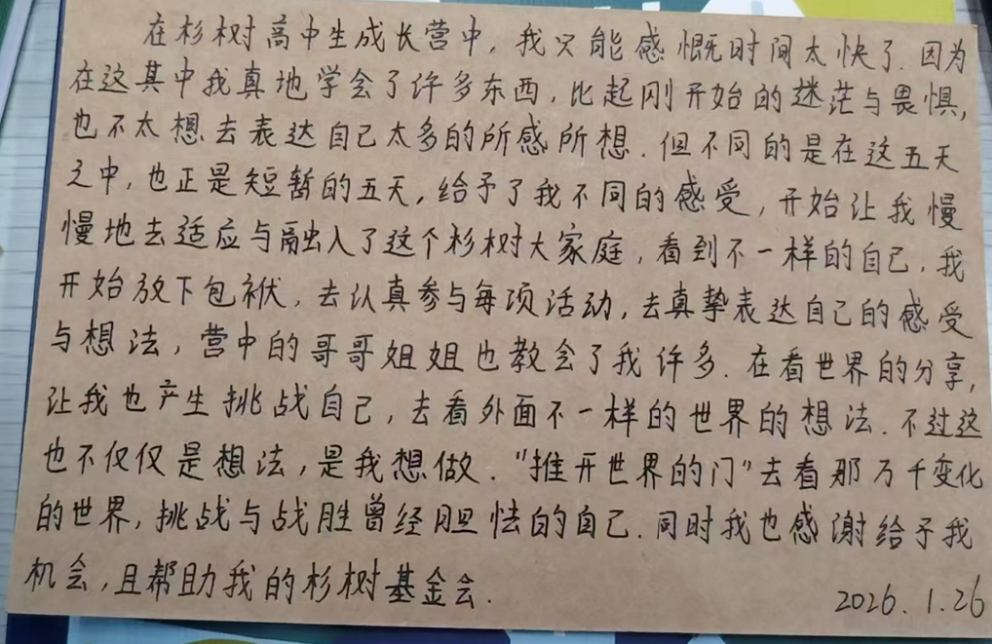 在杉树高中生成长营中，我只能感慨时间太快了.因为
在这其中我真地学会了许多东西，比起刚开始的迷茫与畏惧,
也不太想去表达自己太多的所感所想.但不同的是在这五天
之中，也正是短暂的五天，给予了我不同的感受，开始让我慢
慢地去适应与融入了这个杉树大家庭，看到不一样的自己.我
开始放下包袱，去认真参与每项活动，去真挚表达自己的感受
与想法，营中的哥哥姐姐也教会了我许多.在看世界的分享,
让我也产生挑战自己，去看外面不一样的世界的想法.不过这
也不仅仅是想法，是我想做."推开世界的门"去看那万千变化
的世界，挑战与战胜曾经胆怯的自己.同时我也感谢给予我
机会，且帮助我的杉树基金会.
2026.1.26